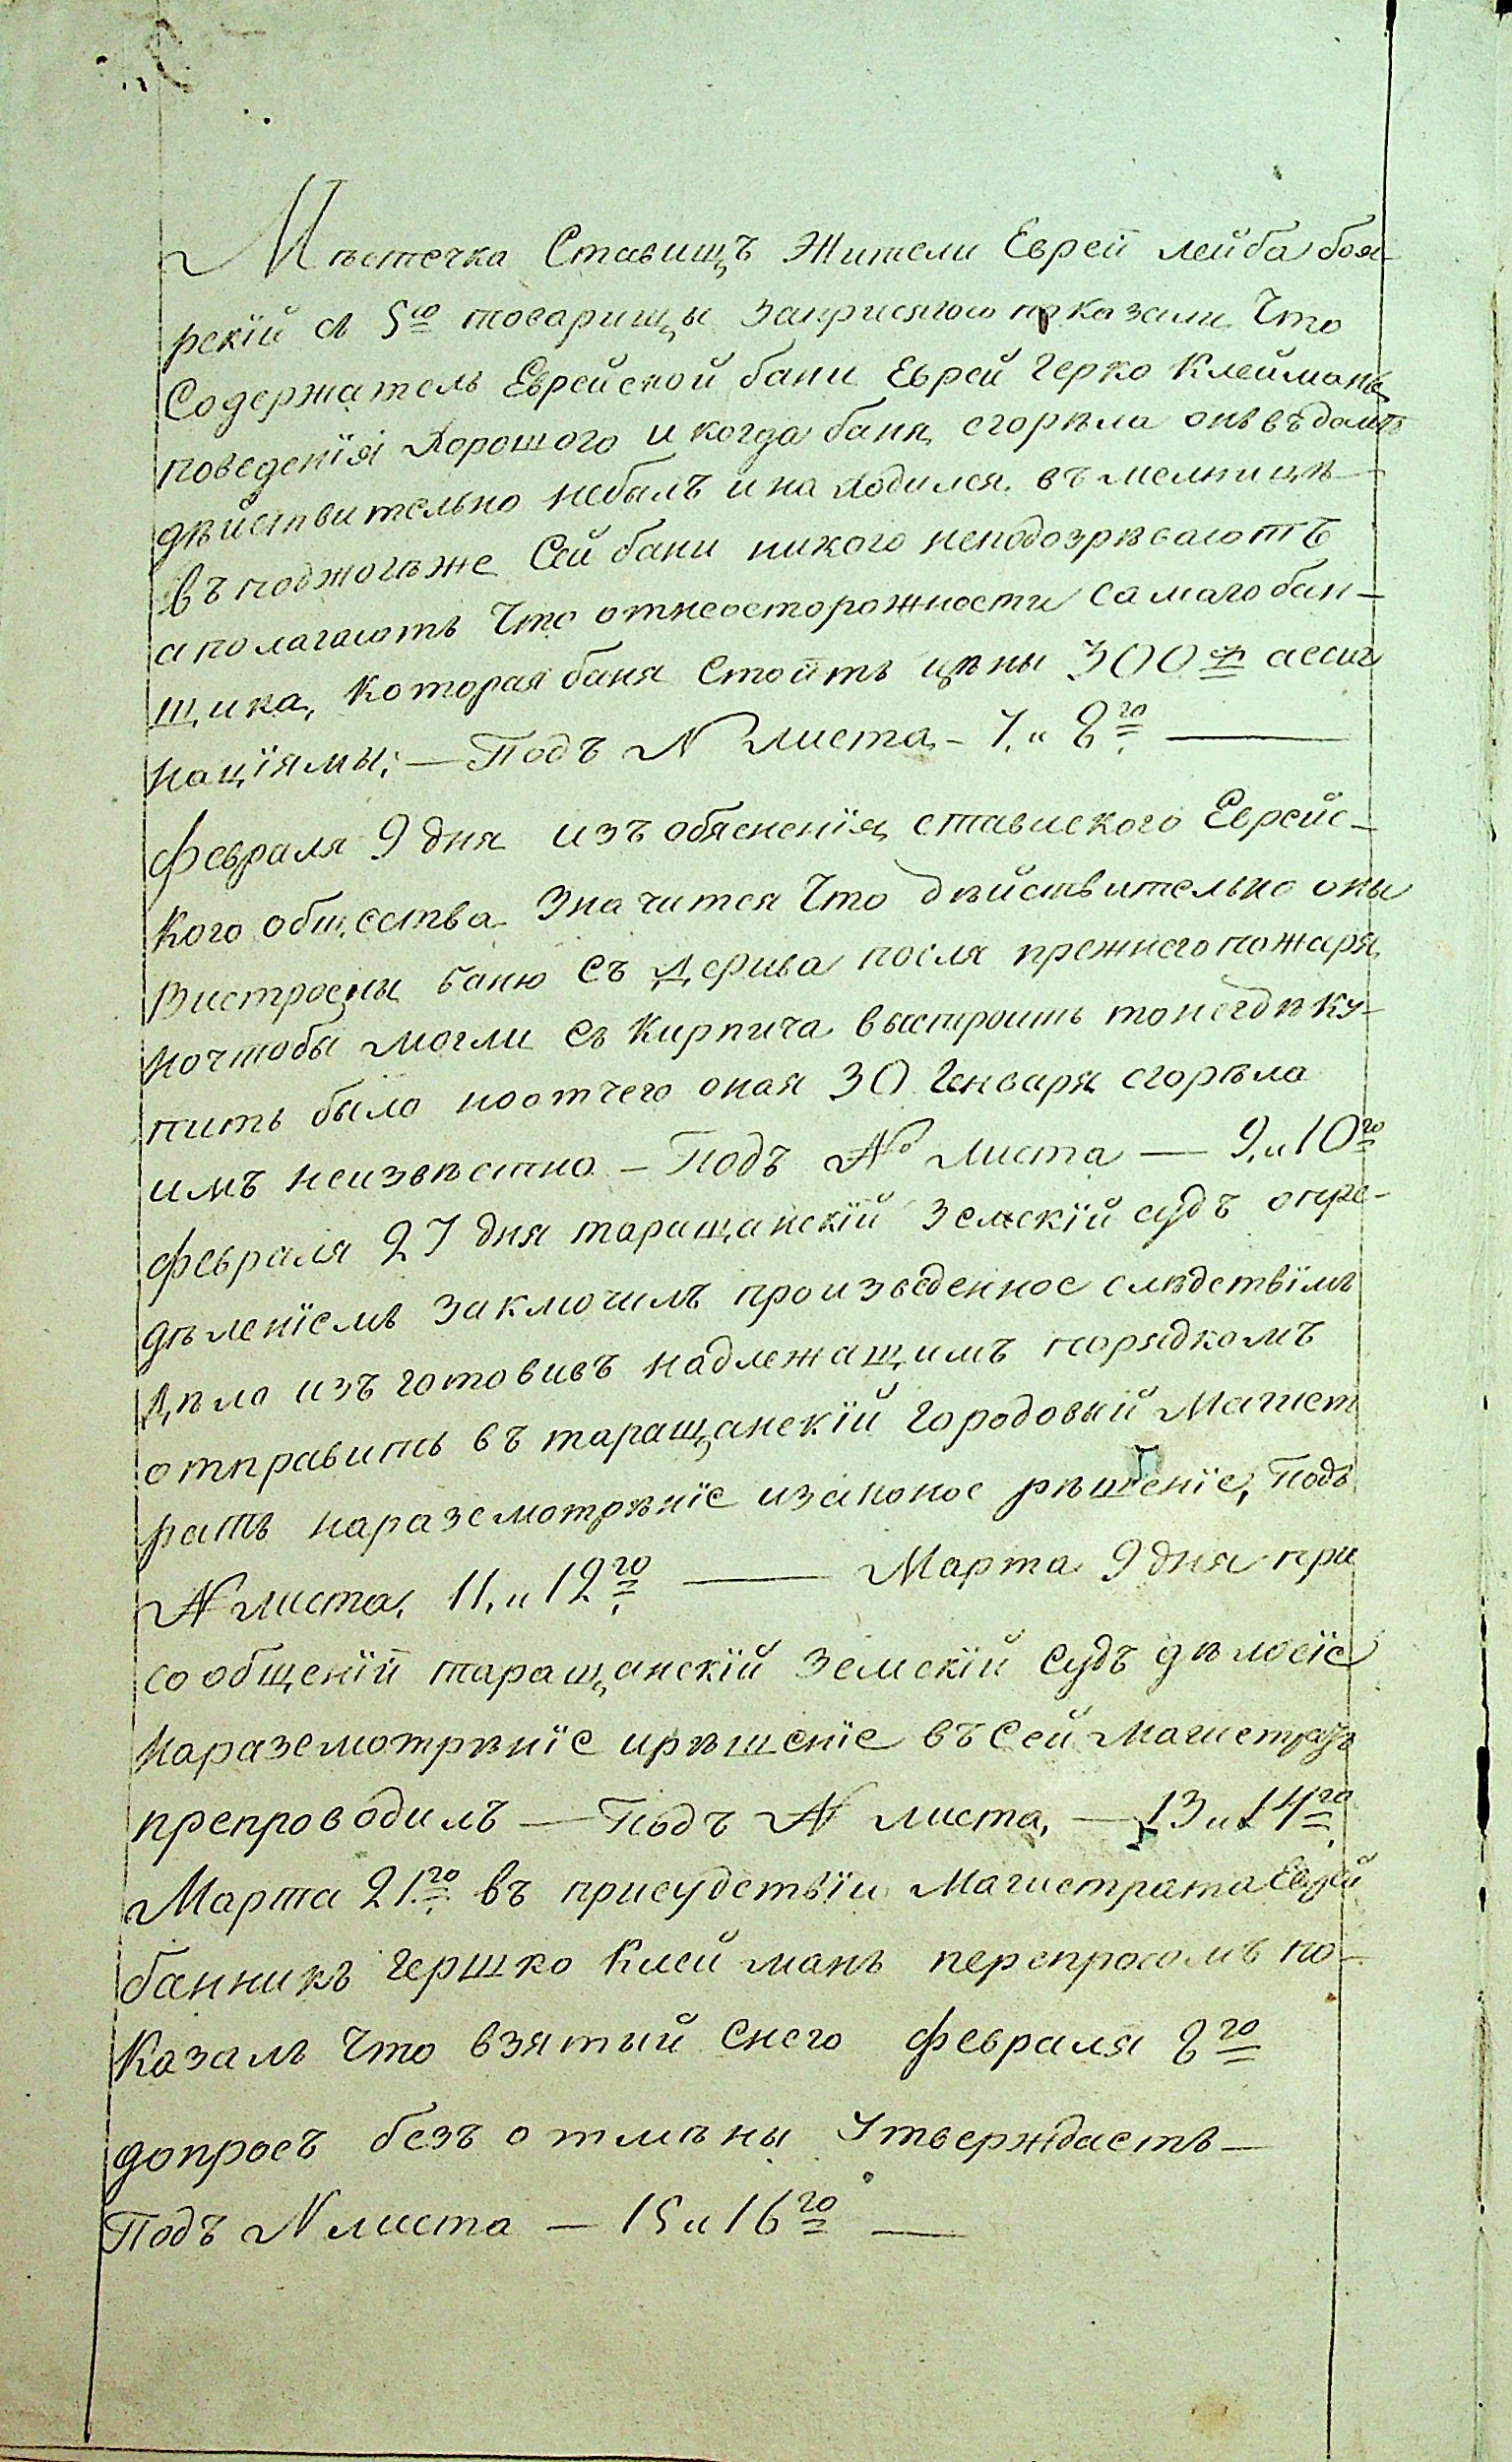 Мѣстечка Ставищъ Жители Еврей лейба боя-
рскій съ 5ю товарищы заприсягою показали Что
Содержатель Еврейской бани Еврей Герко Клейманъ
поведенія Хорошого и когда баня сгорѣла онъ въ домѣ
дѣйствительно небылъ и находился въ мелницѣ —
въ поджогѣ же Сей бани никого неподозрѣваютъ
а полагаютъ Что отнеосторожности самаго бан-
щика, Которая баня Стоитъ цѣны 300 р ассиг
націямы; — Подъ N листа — 7. и 8го —
февраля 9 дня изъ обясненія ставиского Еврейс-
кого общества Значится Что дѣйствительно оны
Вистроены баню Съ Дерива посля прежнего пожара
ночтобы могли съ Кирпича выстроить то негдѣ ку-
пить было но отчего оная 30 Генваря сгорѣла
имъ неизвѣстно — Подъ № листа — 9. и 10го
февраля 27 дня таращанскій Земскій судъ опре-
дѣленіемъ заключилъ произведенное слѣдствімъ
Дѣло изъ готовивъ надлежащимъ порядкомъ
отправить въ таращанскій Городовый Магист
ратъ наразсмотрѣніе изаконое рѣшеніе, Подъ
N листа, 11. и 12го — Марта 9 дня при
сообщеній таращанскій Земскій Судъ дѣло сіе
наразсмотрѣніе ирѣшеніе въ Сей Магистратъ
препроводилъ — Подъ N листа, — 13 и 14го
Марта 21го въ присудствіи Магистрата Еврей
банникъ Гершко Клейманъ перепросомъ по-
Казалъ Что взятый Снего февраля 8го
допросъ безъ отмѣны Утверждаетъ —
Подъ N листа — 15 и 16го —